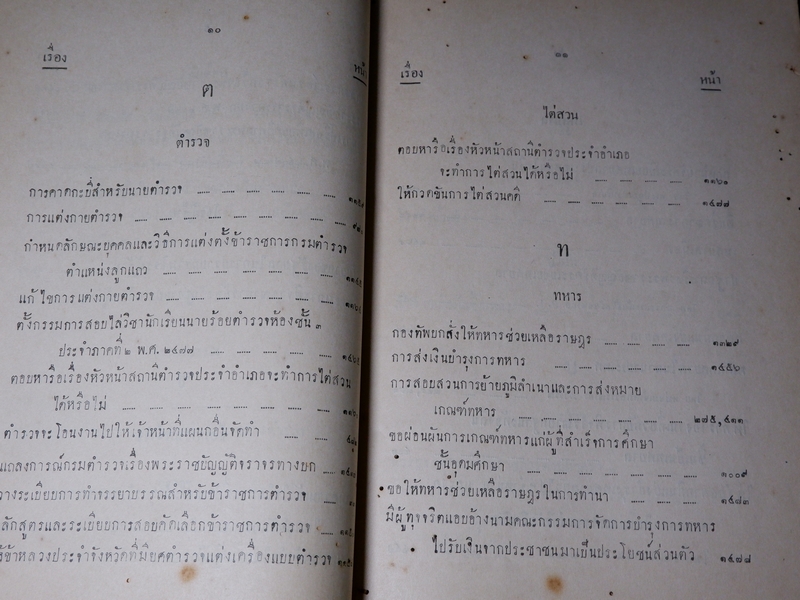 ๑๐
เรื่อง
หน้า
ต
ตำรวจ
การคาดกะบี่สำหรับนายตำรวจ
การแต่งกายตำรวจ
กำหนดลักษณะบุคคลและวิธีการแต่งตั้งข้าราชการกรมตำรวจ
ตำแหน่งลูกแถว
แก้ไขการแต่งกายตำรวจ
ตั้งกรรมการสอบไล่วิชานักเรียนนายร้อยตำรวจห้องชั้น ๓
ประจำภาคที่ ๒ พ.ศ. ๒๔๗๗
ตอบหารือเรื่องหัวหน้าสถานีตำรวจประจำอำเภอจะทำการไต่สวน
ได้หรือไม่
ตำรวจจะโอนงานไปให้เจ้าหน้าที่แผนกอื่นจัดทำ
แถลงการณ์กรมตำรวจเรื่องพระราชบัญญัติจราจรทางบก
วางระเบียบการทำจรรยาบรรณสำหรับข้าราชการตำรวจ
ลักสูตรและระเบียบการสอบคัดเลือกข้าราชการตำรวจ
ข้าหลวงประจำจังหวัดที่มียศตำรวจแต่งเครื่องแบบตำรวจ
๑๑
เรื่อง
หน้า
ไต่สวน
ตอบหารือเรื่องหัวหน้าสถานีตำรวจประจำอำเภอ
จะทำการไต่สวนได้หรือไม่ ๑๑๖๑
ให้กวดขันการไต่สวนคดี ๑๔๗๗
ท
ทหาร
กองทัพบกสั่งให้ทหารช่วยเหลือราษฎร ๑๓๒๙
การส่งเงินบำรุงการทหาร ๑๔๕๖
การสอบสวนการย้ายภูมิลำเนาและการส่งหมาย
เกณฑ์ทหาร ๒๗๕,๔๑๑
ขอผ่อนผันการเกณฑ์ทหารแก่ผู้ที่สำเร็จการศึกษา
ชั้นอุดมศึกษา ๑๐๐๙
ขอให้ทหารช่วยเหลือราษฎรในการทำนา ๑๔๘๓
มีผู้ทุจจริตแอบอ้างนามคณะกรรมการจัดการบำรุงการทหาร
ไปรับเงินจากประชาชนมาเป็นประโยชน์ส่วนตัว ๑๔๗๘